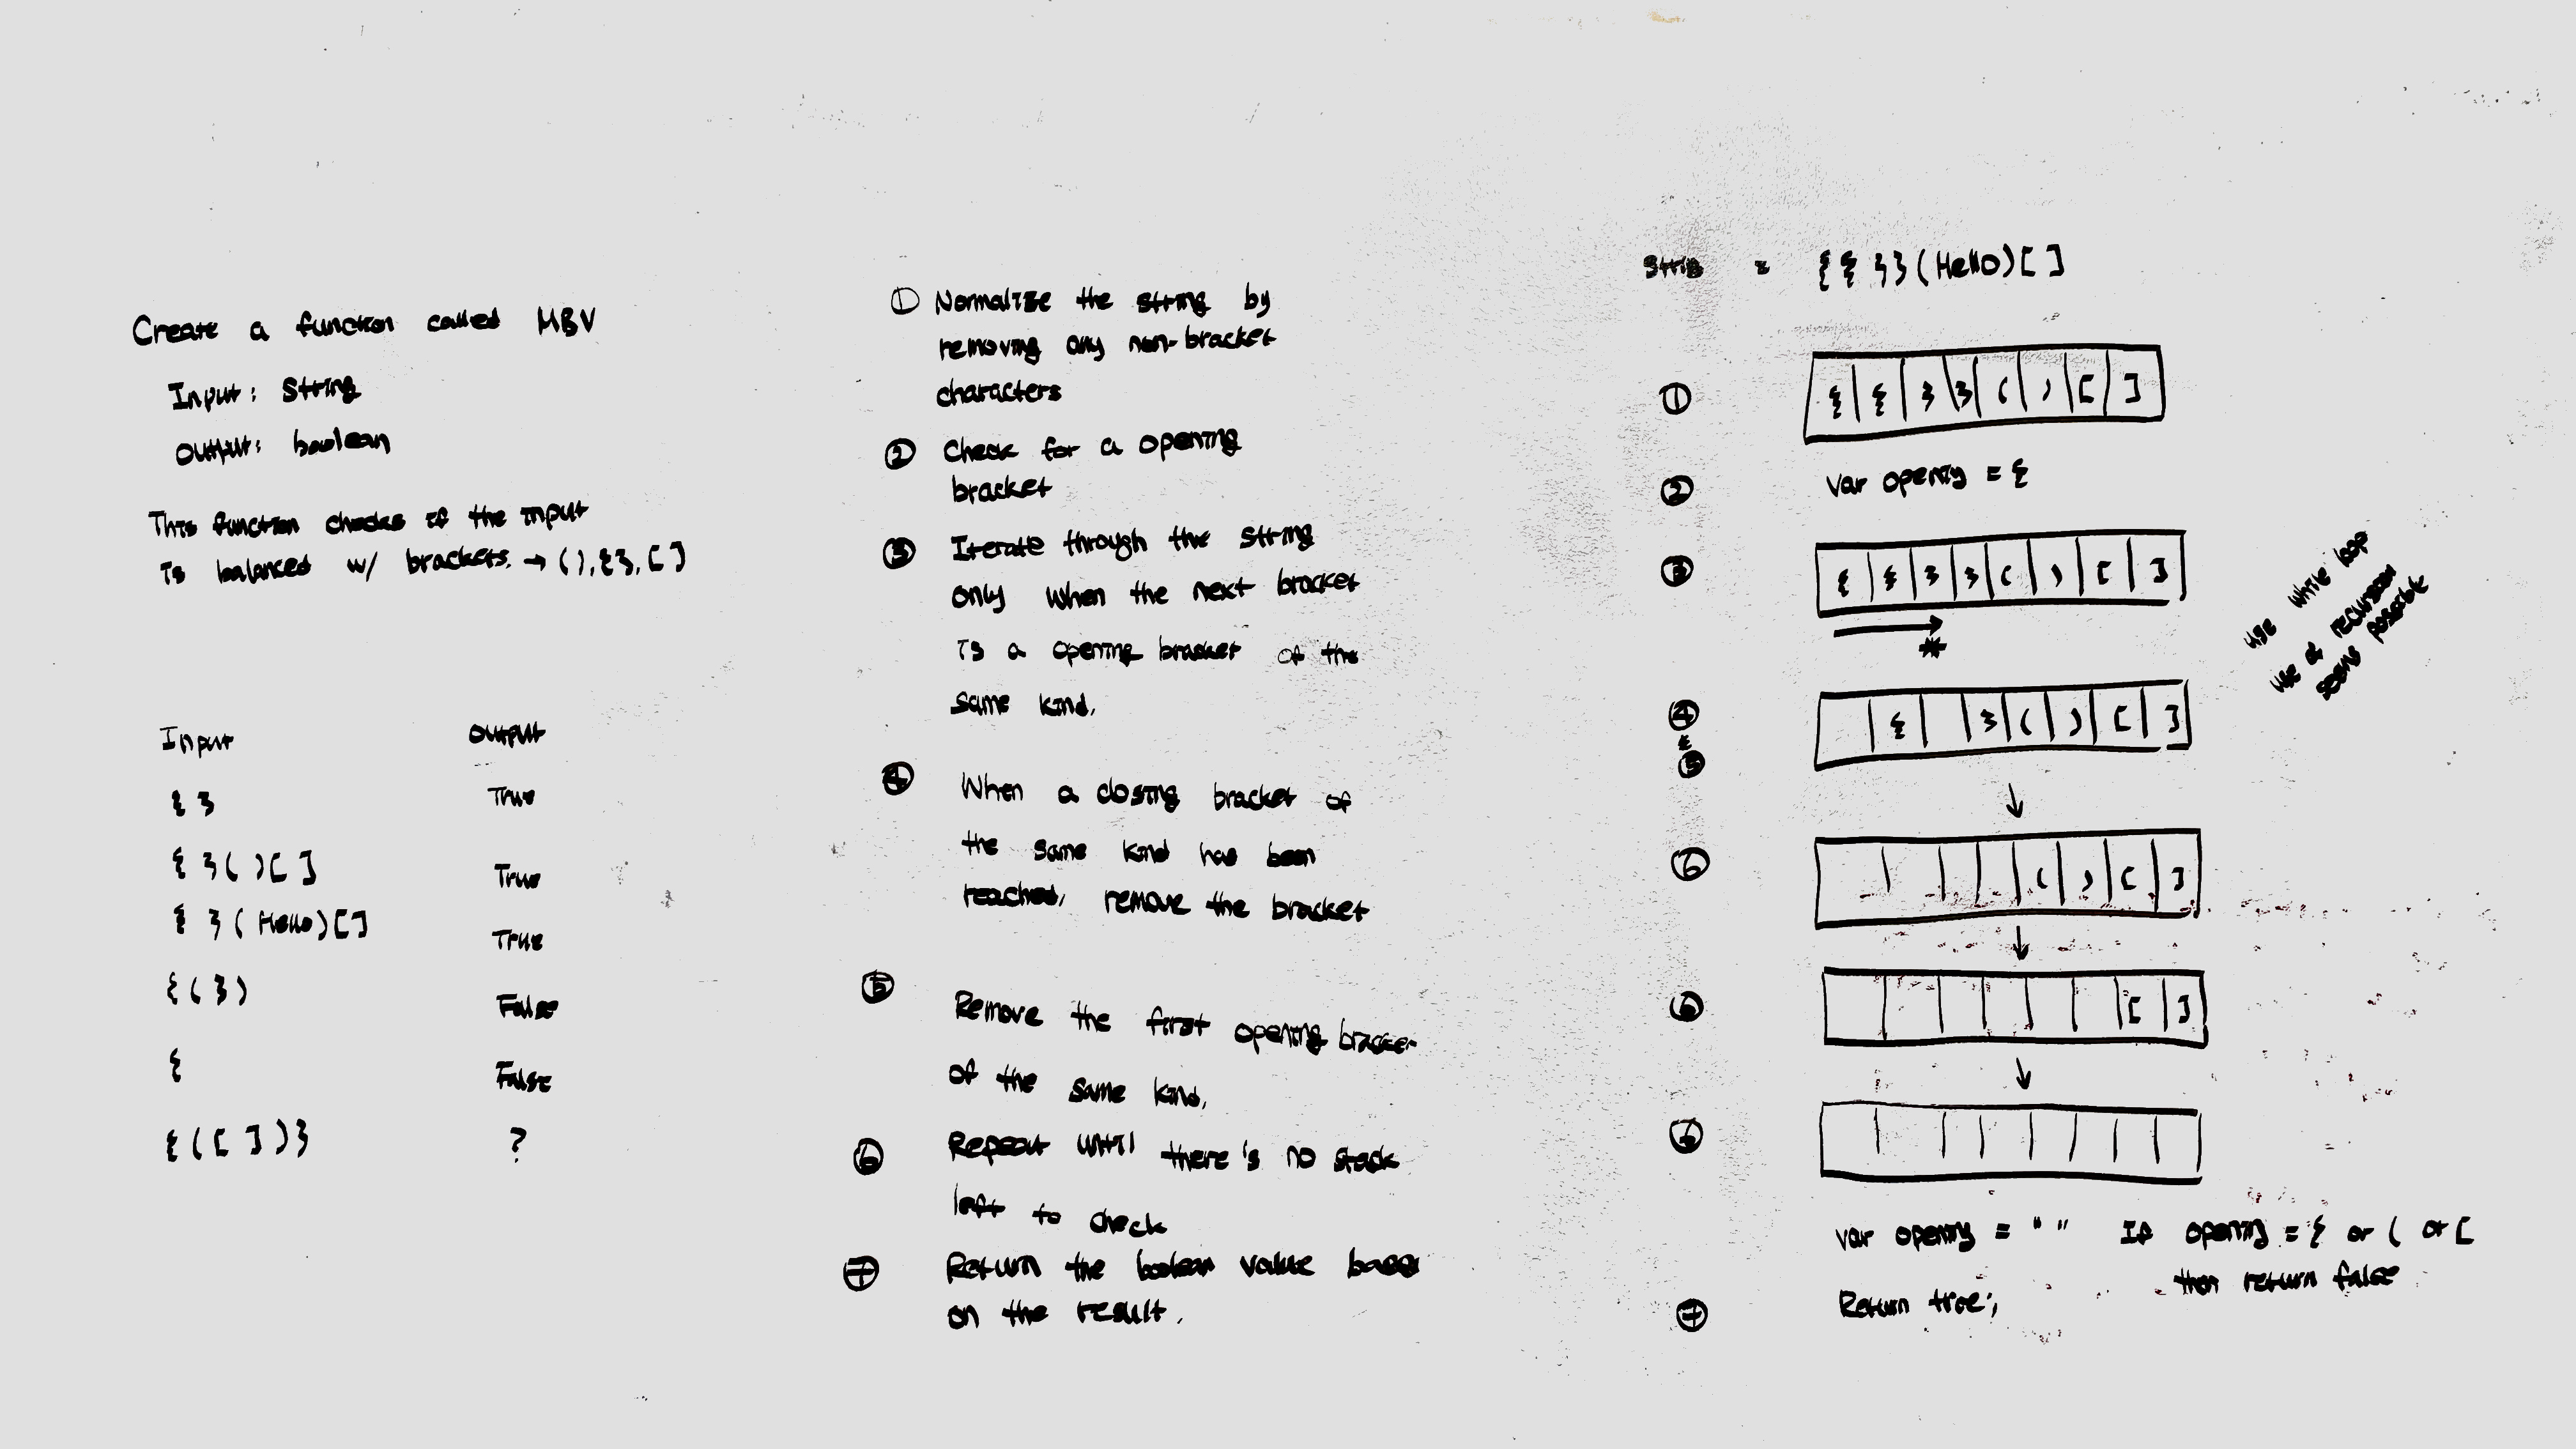 Create a function called MBV
Input: String
Output: boolean
This function checks if the input
Is balanced w/ brackets. → (), {}, []
Input Output
{ } True
{ } ( ) [ ] True
{ } ( Hello ) [ ] True
{ ( } ) False
{ False
{ ( [ ] ) } ?
① Normalize the string by
removing any non-bracket
characters
② Check for a opening
bracket
③ Iterate through the string
only when the next bracket
Is a opening bracket of the
same kind.
④ When a closing bracket of
the same kind has been
reached, remove the bracket
⑤ Remove the first opening bracket
of the same kind.
⑥ Repeat until there's no stack
left to check
⑦ Return the boolean value base
on the result.
String = { { } } ( Hello ) [ ]
① { { } } ( ) [ ]
② var opening = {
③ { { } } ( ) [ ]
*
④ { } ( ) [ ]
&
⑤
↓
⑥ ( ) [ ]
↓
⑥ [ ]
↓
⑥
var opening = " " If opening = { or ( or [
then return false
⑦ Return true;
use while loop
use of recursion
seems possible